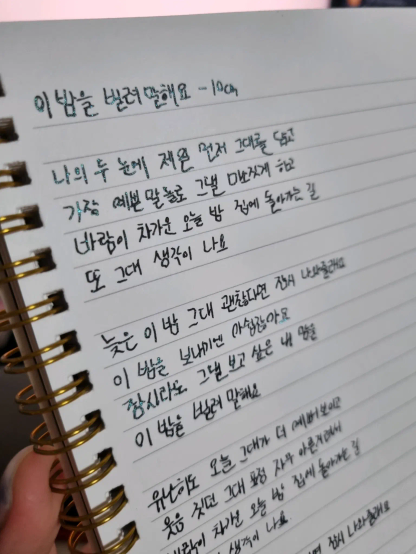 이 밤을 빌려 말해요 - 10cm
나의 두 눈에 제일 먼저 그대를 담고
가장 예쁜 말들로 그댈 마중하고
바람이 차가운 오늘 밤 집에 돌아가는 길
또 그대 생각이 나요
늦은 이 밤 그대 괜찮다면 잠시 나와줄래요
이 밤을 보내기엔 아쉽잖아요
잠시라도 그댈 보고 싶은 내 맘을
이 밤을 빌려 말해요
유난히도 오늘 그대가 더 예뻐보이고
웃음 짓던 그대 표정 자꾸 아른거려서
바람이 차가운 오늘 밤 집에 돌아가는 길
생각이 나요
잠시 나와줄래요